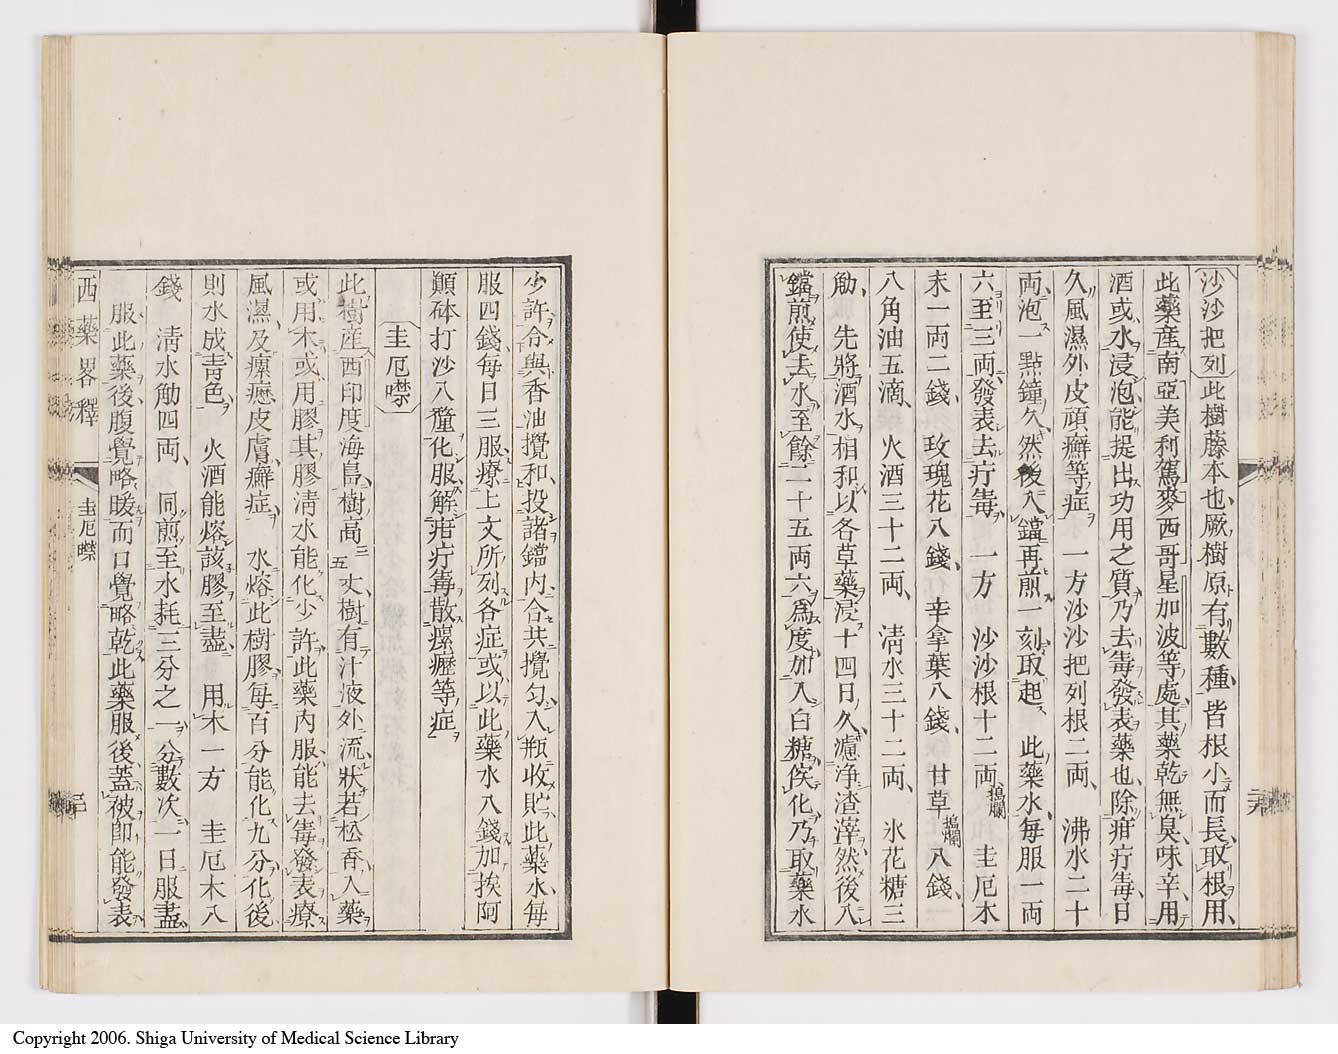 沙沙把列 此樹藤本也厥樹原有數種皆根小而長取根用
此藥産南亞美利駕麥西哥星加波等處其藥乾無臭味辛用
酒或水浸泡能提出功用之質乃去毒發表藥也除疳疔毒日
久風濕外皮頑癬等症 一方沙沙把列根二両 沸水二十
両泡一點鐘久然後入鐺再煎一刻取起 此藥水毎服一両
六至三両發表去疔毒 一方 沙沙根十二両搗爛 圭厄木
末一両二錢 玫瑰花八錢 辛拿葉八錢 甘草搗爛八錢
八角油五滴 火酒三十二両 淸水三十二両 氷花糖三
觔 先將酒水相和以各草藥浸十四日久濾浄渣滓然後八
鐺煎使去水至餘二十五両六爲度加入白糖俟化乃取藥水
二十九
少許合與香油攪和投諸鐺内合共攪匀入瓶收貯此藥水毎
服四錢毎日三服療上文所列各症或以此藥水八錢加挨阿
顚砵打沙八釐化服解疳疔毒散瘰癧等症
圭厄㗲
此樹産西印度海島樹高二五丈樹有汁液外流狀若松香入藥
或用木或用膠其膠淸水能化少許此藥内服能去毒發表療
風濕及瘰癧皮膚癬症 水熔此樹膠毎百分能化九分化後
則水成靑色 火酒能熔該膠至盡 用木一方 圭厄木八
錢 淸水觔四両 同煎至水耗三分之一分數次一日服盡
服此藥後腹覺略暖而口覺略乾此藥服後蓋被卽能發表
西藥畧釋
圭厄㗲
Copyright 2006. Shiga University of Medical Science Library